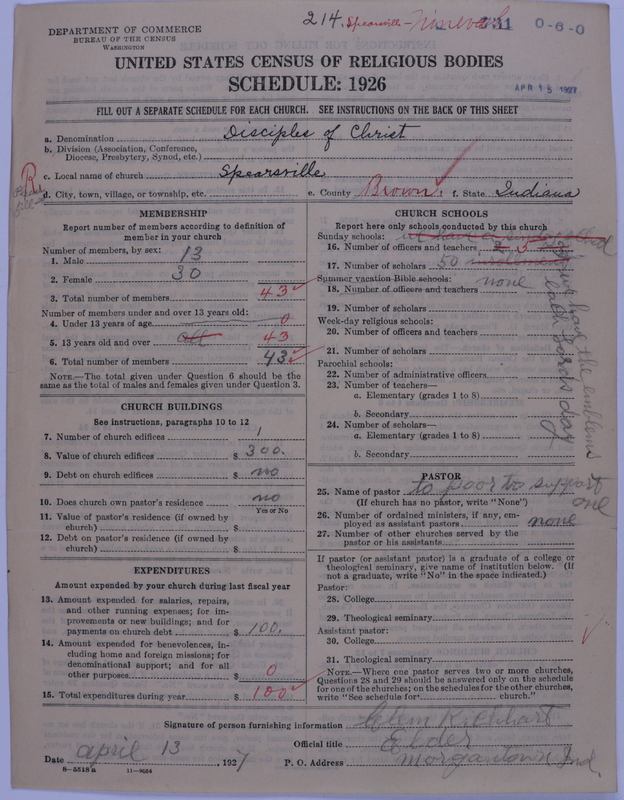 214. Spearsville - Nineveh 231 0-6-0
DEPARTMENT OF COMMERCE
BUREAU OF THE CENSUS
WASHINGTON
UNITED STATES CENSUS OF RELIGIOUS BODIES
SCHEDULE: 1926
APR 15 1927
FILL OUT A SEPARATE SCHEDULE FOR EACH CHURCH. SEE INSTRUCTIONS ON THE BACK OF THIS SHEET
a. Denomination Disciples of Christ
b. Division (Association, Conference,
Diocese, Presbytery, Synod, etc.)
R
c. Local name of church Spearsville
d. City, town, village, or township, etc. e. County Brown f. State Indiana
MEMBERSHIP
Report number of members according to definition of
member in your church
Number of members, by sex:
1. Male 13
2. Female 30
3. Total number of members 43
Number of members under and over 13 years old:
4. Under 13 years of age 0
5. 13 years old and over all 43
6. Total number of members 43
NOTE.—The total given under Question 6 should be the
same as the total of males and females given under Question 3.
CHURCH BUILDINGS
See instructions, paragraphs 10 to 12
7. Number of church edifices 1
8. Value of church edifices $ 300.
9. Debt on church edifices $ no
10. Does church own pastor's residence no
Yes or No
11. Value of pastor's residence (if owned by
church) $
12. Debt on pastor's residence (if owned by
church) $
EXPENDITURES
Amount expended by your church during last fiscal year
13. Amount expended for salaries, repairs,
and other running expenses; for im-
provements or new buildings; and for
payments on church debt $ 100.
14. Amount expended for benevolences, in-
cluding home and foreign missions; for
denominational support; and for all
other purposes. $ 0
15. Total expenditures during year $ 100
CHURCH SCHOOLS
Report here only schools conducted by this church
Sunday schools:
16. Number of officers and teachers 5
17. Number of scholars 50
Summer vacation Bible schools: none
18. Number of officers and teachers
19. Number of scholars
Week-day religious schools:
20. Number of officers and teachers
21. Number of scholars
Parochial schools:
22. Number of administrative officers
23. Number of teachers—
a. Elementary (grades 1 to 8)
b. Secondary
24. Number of scholars—
a. Elementary (grades 1 to 8)
b. Secondary
have the emblems
each Lords day
PASTOR
25. Name of pastor to poor to support
one
(If church has no pastor, write "None")
26. Number of ordained ministers, if any, em-
ployed as assistant pastors none
27. Number of other churches served by the
pastor or his assistants
If pastor (or assistant pastor) is a graduate of a college or
theological seminary, give name of institution below. (If
not a graduate, write "No" in the space indicated.)
Pastor:
28. College
29. Theological seminary
Assistant pastor:
30. College
31. Theological seminary
NOTE.—Where one pastor serves two or more churches,
Questions 28 and 29 should be answered only on the schedule
for one of the churches; on the schedules for the other churches,
write "See schedule for church."
Signature of person furnishing information Glenn
Official title Elder
Date april 13 1927 P. O. Address Morgantown Ind.
8-5518a 11-9054